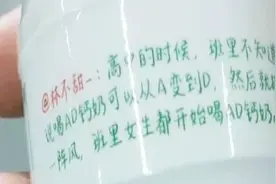 @林不甜一:高中的时候,班里不知道
说喝AD钙奶可以从A变到D,然后
一阵风,班里女生都开始喝AD钙奶,